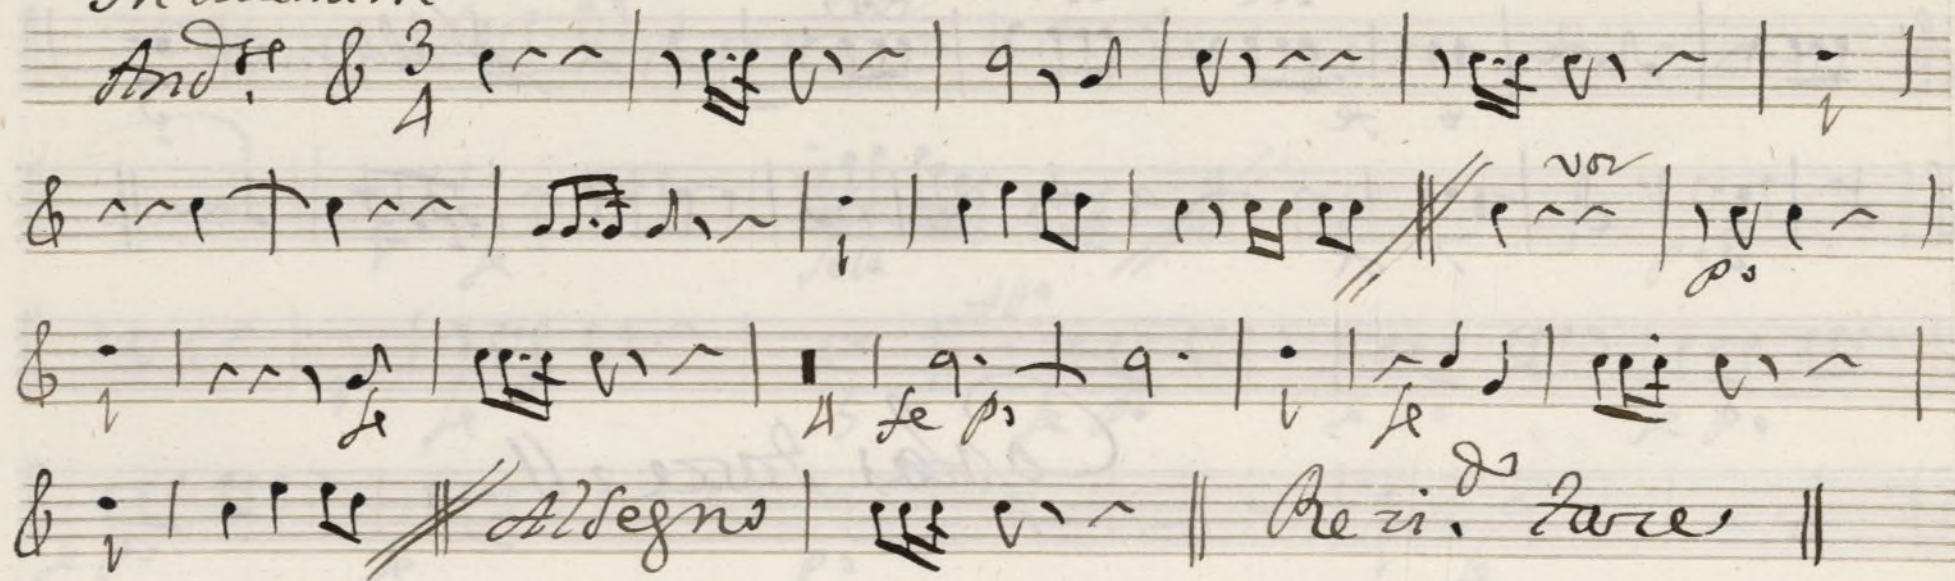 And.te 3 4 1
1 voz pº
1 fe 4 fe pº 1 fe
1 Al segno Rezi.do Tace